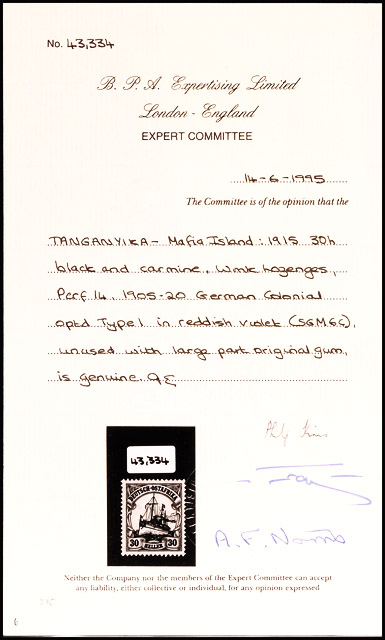 No. 43,334
B. P. A. Expertising Limited
London - England
EXPERT COMMITTEE
14-6-1995
The Committee is of the opinion that the
TANGANYIKA - Mafia Island: 1915 30h
black and carmine, Wmk hozenges,
Perf 14, 1905-20 German Colonial
optd Type 1 in reddish violet (SGM6c),
unused with large part original gum,
is genuine.
43,334
DEUTSCH-OSTAFRIKA
30 HELLER 30
A. F. Norris
Neither the Company nor the members of the Expert Committee can accept
any liability, either collective or individual, for any opinion expressed
6